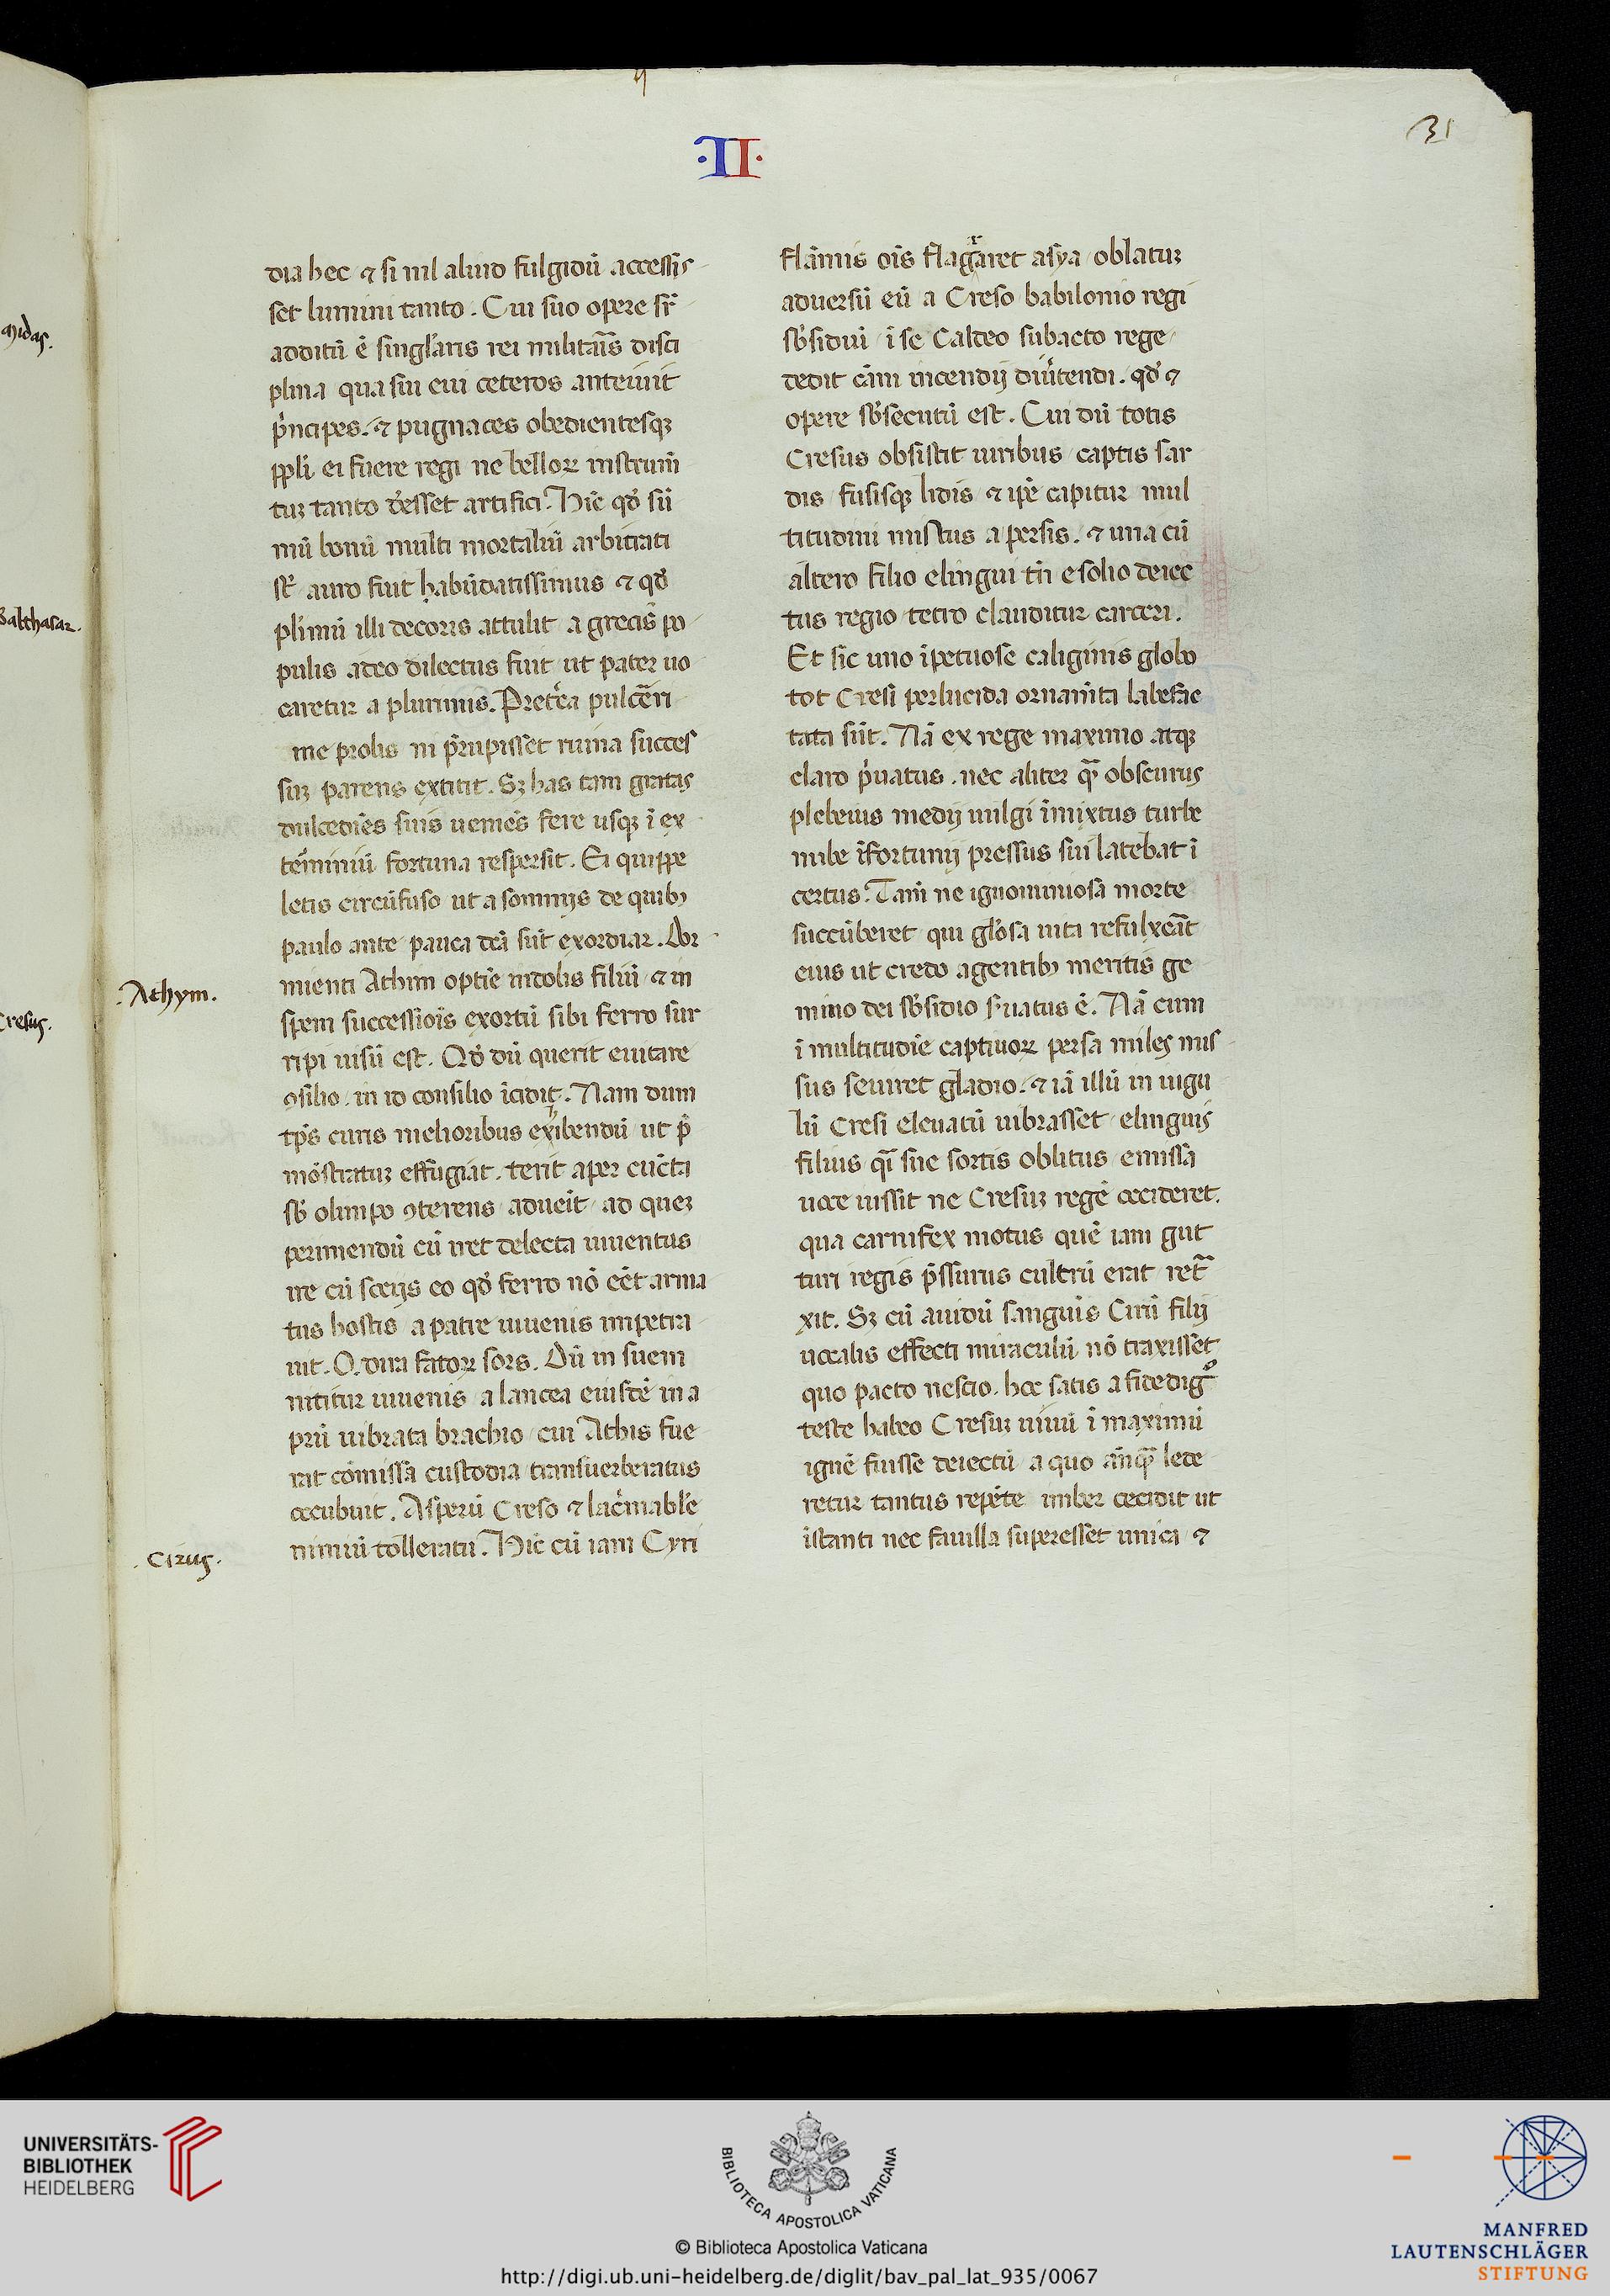 31
·II·
midas.
Balthasar.
Cresus.
dia hec ⁊ si nil aliud fulgidū accessis
set lumini tanto. Cui suo opere sr̄
additū ē singl'aris rei militar̄is disci
plina qua sui eui ceteros anteiuit
p̍ncipes. ⁊ pugnaces obedientesqꝫ
ppl̄i ei fuere regi ne belloꝝ instrum̄
tuꝫ tanto d̕esset artifici. Hic qd̕ sū
mū bonū multi mortaliū arbitrati
st̄ auro fuit habūdatissimus ⁊ qd̕
plimū illi decoris attulit a grecis po
pulis adeo dilectus fuit ut pater uo
caretur a plurimis. Pret̕ea pulcer̄i
me prolis ni p̄rupisset ruina succes
suꝫ parens extitit. Sꝫ has tam gratas
dulcedīes suis uenīes fere usqꝫ ī ex
t̕eminiū fortuna respersit. Ei quippe
letis circūfuso ut a somnijs de quibꝫ
paulo ante pauca dc̄a sūt exordiar. Dor
mienti Athim optīe indolis filiū ⁊ in
spem successiōis exortū sibi ferro sur
ripi uisū est. Qd̕ dū querit euitare
ꝯsilio. in id consilio īcidit. Nam dum
tp̄s curis melioribus exhibendū ut p̄
mōstratuꝫ effugiat. terit aper cūcta
sb̕ olimpo ꝯterens adueīt ad queꝫ
perimendū cū iret delecta iuuentus
ire cū socijs eo qd̕ ferro nō eēt arma
tus hostis a patre iuuenis impetra
uit. O. dira fatoꝝ sors. Dū in suem
nititur iuuenis a lancea eiusdē in a
prū uibrata brachio cui Athis fue
rat cōmissa custodia transuerberatus
occubuit. Asperū Creso ⁊ lac̍mabl'e
nimiū tolleratu. Hic cū iam Cyri
.Athym.
.Cirus.
flāmis oīs flagraret asya oblatuꝫ
aduersū eū a Creso babilonio regi
sb̕sidiū ī se Caldeo subacto rege
dedit cām incendij diu̕tendi. qd̕ ⁊
opere sb̕secutū est. Cui dū totis
Cresus obsistit uiribus captis sar
dis fusisqꝫ lidis ⁊ ip̄e capitur mul
titudini mistus a persis. ⁊ una cū
altero filio elingui tn̄ e solio deiec
tus regio tetro clauditur carceri.
Et sic uno īpetuose caliginis globo
tot Cresi perlucida ornam̄ta labefac
tata sūt. Nā ex rege maximo atqꝫ
claro p̍uatus. nec aliter qͣ̄ obscurus
plebeius medij uulgi īmixtus turbe
nube īfortunij pressus sui latebat ī
certus. Tam̄ ne ignominiosa morte
succūberet qui gl'osa uita refulxerāt
eius ut credo agentibꝫ meritis ge
mino dei sb̕sidio s̕uatus ē. Nā cum
ī multitudīe captiuoꝝ persa miles ius
sus seuiret gladio. ⁊ iā illū in iugu
lū Cresi eleuatū uibrasset elinguis
filius qͣ̄ sue sortis oblitus emissa
uoce iussit ne Cresuꝫ regē occideret.
qua carnifex motus quē iam gut
turi regis p̄ssurus cultrū erat ret͛
xit. Sꝫ cū auidū sanguīs Cirū filij
uocalis effecti miraculū nō traxisset
quo pacto nescio. hoc satis a fide digͦ
teste habeo Cresuꝫ uiuū ī maximū
ignē fuisse deiectū a quo an̄qͣ̄ lede
retur tantus repēte imber cecidit ut
īstanti nec fauilla superesset unica ⁊
UNIVERSITÄTS-
BIBLIOTHEK
HEIDELBERG
BIBLIOTECA APOSTOLICA VATICANA
© Biblioteca Apostolica Vaticana
http://digi.ub.uni-heidelberg.de/diglit/bav_pal_lat_935/0067
MANFRED
LAUTENSCHLÄGER
STIFTUNG